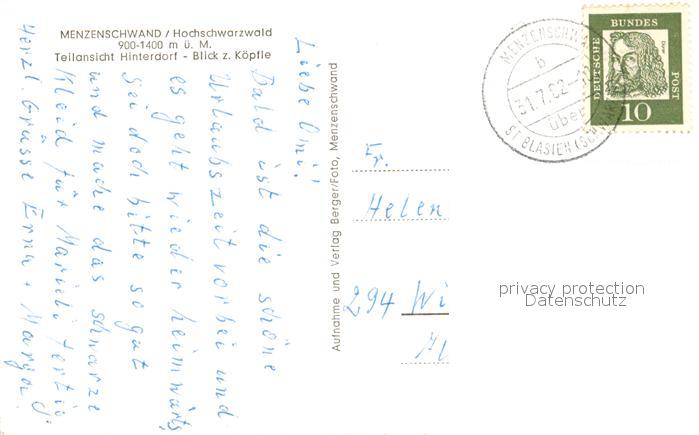 MENZENSCHWAND / Hochschwarzwald
900-1400 m ü. M.
Teilansicht Hinterdorf - Blick z. Köpfle
Liebe Omi!
Bald ist die schöne
Urlaubszeit vorbei und
es geht wieder heimwärts
Sei doch bitte so gut
und mache das schwarze
Kleid für Marieli fertig
Herzl. Grüsse Erna +
Aufnahme und Verlag Berger/Foto, Menzenschwand
MENZENSCHWA
b
31.7.62
über
ST BLASIEN (SCHW
DEUTSCHE
BUNDES
POST
10
Fr.
Helen
294 Wi
privacy protection
Datenschutz